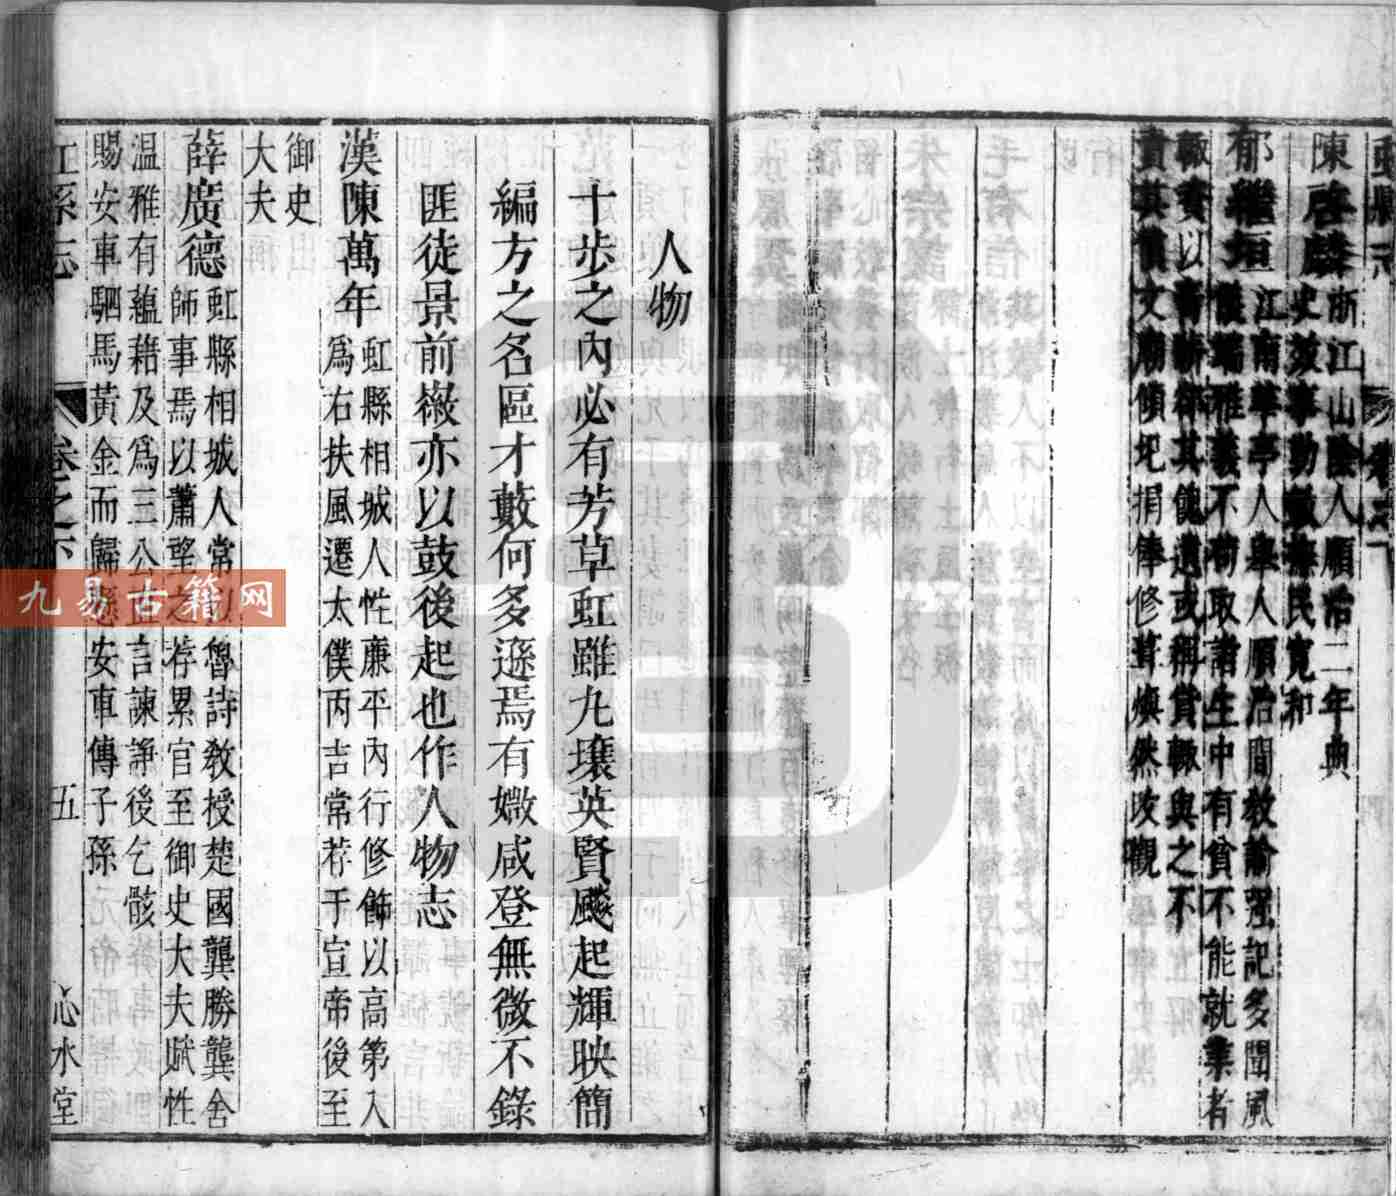 虹縣志
卷之下
陳啓麟
浙江山陰人順治二年典
史蒞事勤敏撫民寬和
郁繼垣
江南華亭人舉人順治間教諭强記多聞風
度端雅義不苟取諸生中有貧不能就業者
輙賚以薪
其餽遺或稱賞輙與之不
責其償文廟傾圮捐俸修葺煥然改觀
人物
十步之內必有芳草虹雖九壤英賢飈起輝映簡
編方之名區才藪何多遜焉有媺咸登無微不錄
匪徒景前徽亦以鼓後起也作人物志
漢陳萬年
虹縣相城人性廉平內行修飾以高第入
爲右扶風遷太僕丙吉常荐于宣帝後至
御史
大夫
薛廣德
虹縣相城人常以魯詩敎授楚國龔勝龔舍
師事焉以蕭望之荐累官至御史大夫贇性
温雅有蘊藉及爲三公直言諫諍後乞骸
賜安車駟馬黃金而歸懸安車傳子孫
虹縣志
卷之下
五
沁水堂
九易古籍网